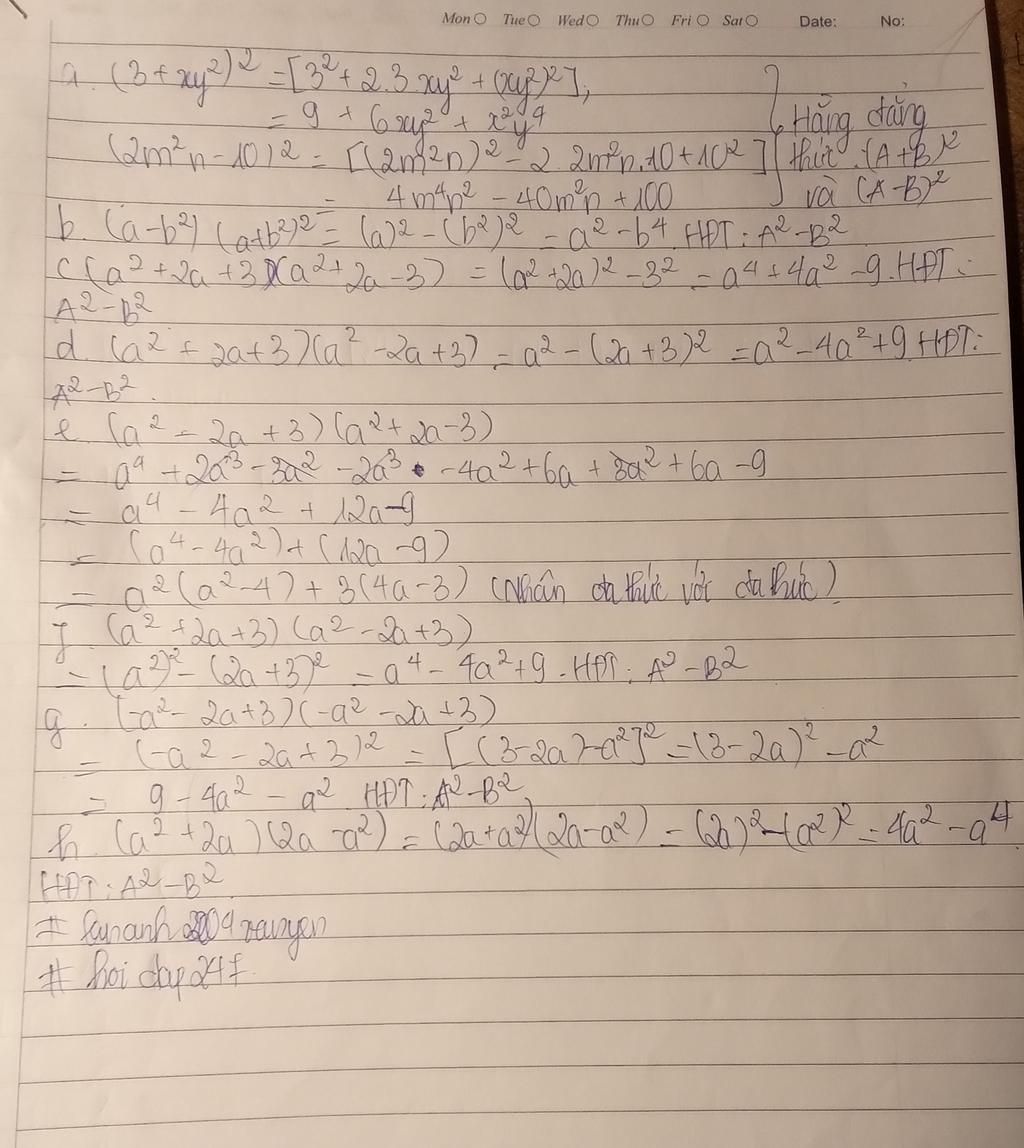 Mon Tue Wed Thu Fri Sat Date: No:
a. (3+xy²)² = [3² + 2.3.xy² + (xy²)²],
= 9 + 6xy² + x²y⁴
(2m²n - 10)² = [(2m²n)² - 2.2m²n.10 + 10²]
= 4m⁴n² - 40m²n + 100
Hằng đẳng
thức (A+B)²
và (A-B)²
b. (a-b²) (a+b²)² = (a)² - (b²)² = a² - b⁴. HĐT: A² - B²
c (a² + 2a + 3)(a² + 2a - 3) = (a² + 2a)² - 3² = a⁴ + 4a² - 9. HĐT:
A² - B²
d. (a² + 2a+3)(a² - 2a+3) = a² - (2a+3)² = a² - 4a² + 9. HĐT:
A² - B².
e. (a² - 2a + 3)(a² + 2a - 3)
= a⁴ + 2a³ - 3a² - 2a³ - 4a² + 6a + 3a² + 6a - 9
= a⁴ - 4a² + 12a - 9
= (a⁴ - 4a²) + (12a - 9)
= a²(a² - 4) + 3(4a - 3) (Nhân đa thức với đa thức)
f (a² + 2a+3) (a² - 2a+3)
= (a²)² - (2a+3)² = a⁴ - 4a² + 9. HĐT: A² - B²
g. (-a² - 2a+3)(-a² - 2a+3)
= (-a² - 2a + 3)² = [(3-2a)-a²]² = (3 - 2a)² - a²
= 9 - 4a² - a². HĐT: A² - B²
h. (a² + 2a)(2a - a²) = (2a + a²)(2a - a²) = (2a)² - (a²)² = 4a² - a⁴.
HĐT: A² - B²
#
# hoi dap 247